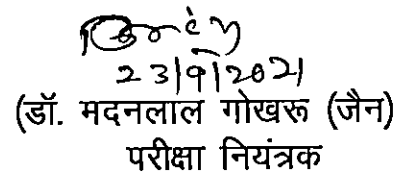 23/9/2021
(डॉ. मदनलाल गोखरू (जैन)
परीक्षा नियंत्रक